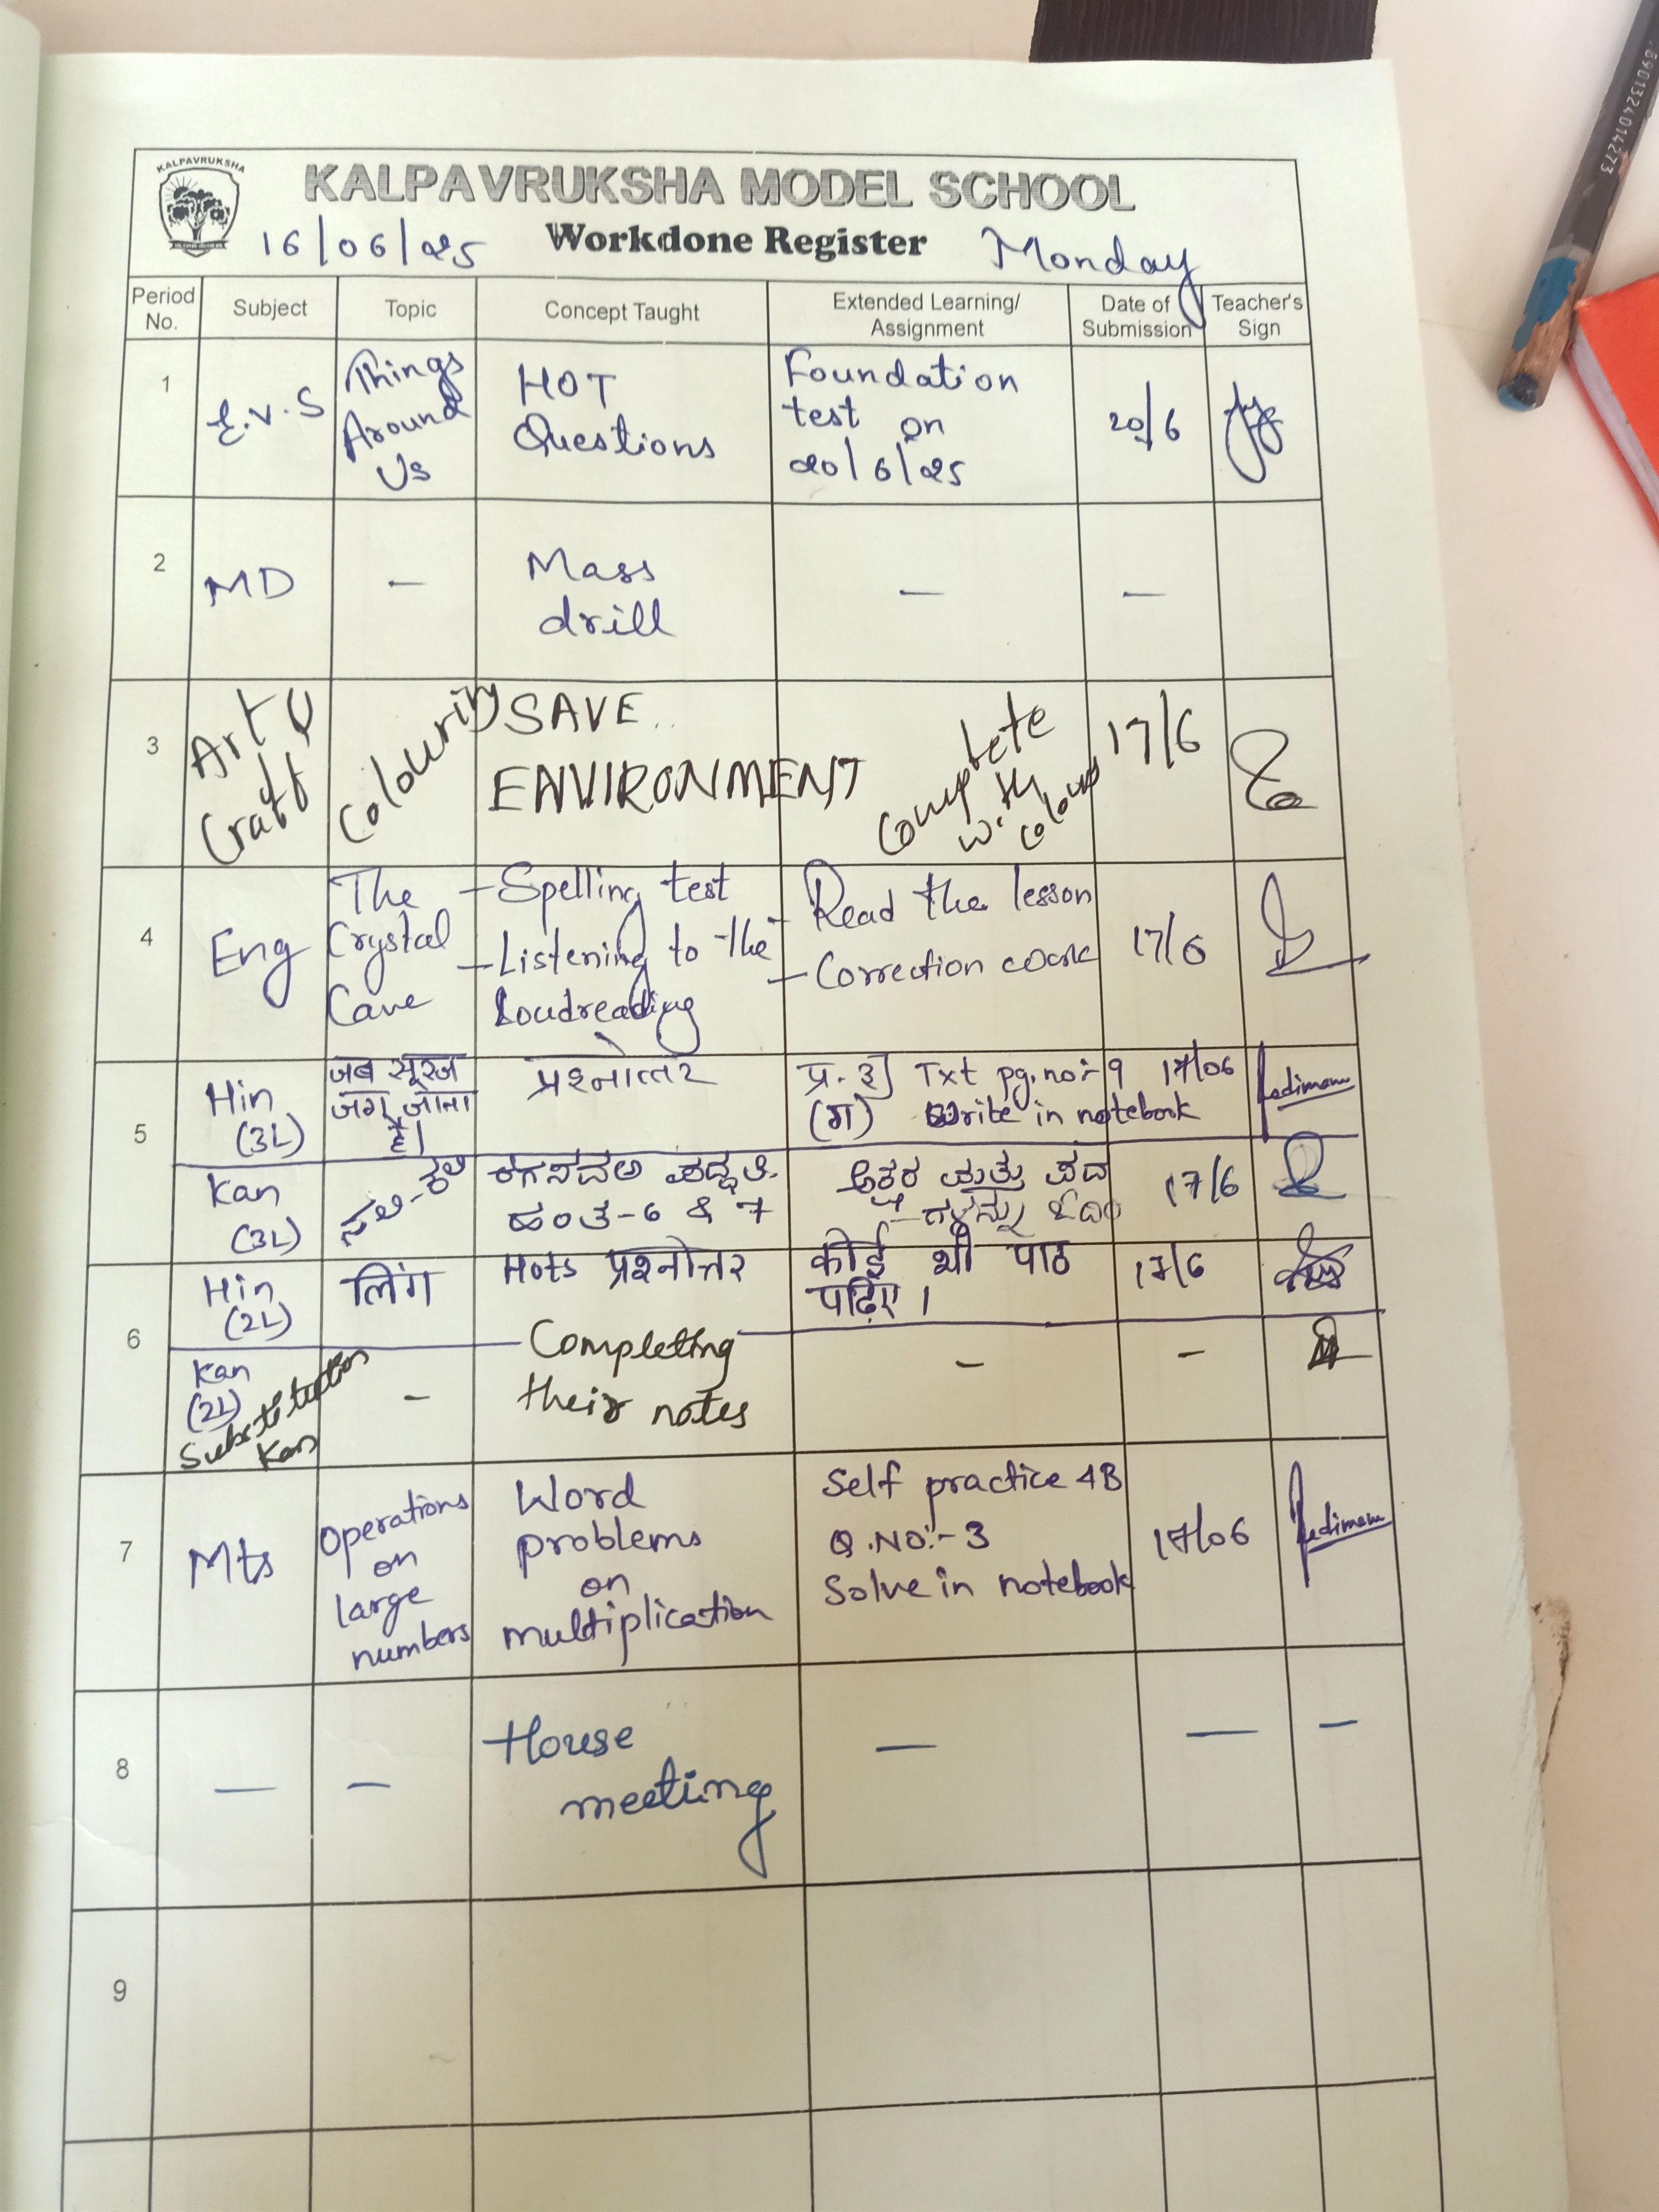 KALPAVRUKSHA
KALPAVRUKSHA MODEL SCHOOL
16/06/25 Workdone Register Monday
Period No. Subject Topic Concept Taught Extended Learning/ Assignment Date of Submission Teacher's Sign
1 E.V.S Things Around Us HOT Questions Foundation test on 20/6/25 20/6
2 MD - Mass drill - -
3 Art & Craft Colouring SAVE ENVIRONMENT Complete with colours 17/6
4 Eng The Crystal Cave - Spelling test - Listening to the Loudreading - Read the lesson - Correction work 17/6
5 Hin (3L) जब सूरज जग जाता है। प्रश्नोत्तर प्र. 3] Txt pg.no:- 9 (ग) Write in notebook 17/06
Kan (3L) ನಲಿ-ಕಲಿ ರಗಸದಅ ಪದ್ಧತಿ. ಹಂತ-6 & 7 ಅಕ್ಷರ ಮತ್ತು ಪದ -ಗಳನ್ನು ಓದಿ 17/6
6 Hin (2L) लिंग Hots प्रश्नोत्तर कोई भी पाठ पढ़िए। 17/6
Kan (2L) Substitution Kan - Completing their notes - -
7 Mts Operations on large numbers Word problems on multiplication Self practice 4B Q.NO:-3 Solve in notebook 17/06
8 - - House meeting - - -
9
8901324014273